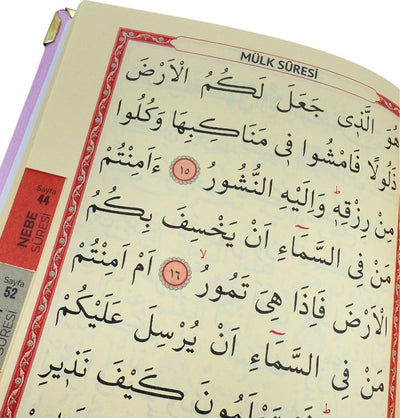 MÜLK SÛRESİ
هُوَ الَّذٖى جَعَلَ لَكُمُ الْاَرْضَ
ذَلُولًا فَامْشُوا فٖى مَنَاكِبِهَا وَكُلُوا
مِنْ رِزْقِهٖ وَاِلَيْهِ النُّشُورُ ١٥ ءَاَمِنْتُمْ
مَنْ فِى السَّمَاءِ اَنْ يَخْسِفَ بِكُمُ
الْاَرْضَ فَاِذَا هِىَ تَمُورُ ١٦ اَمْ اَمِنْتُمْ
مَنْ فِى السَّمَاءِ اَنْ يُرْسِلَ عَلَيْكُمْ
كَيْفَ نَذٖيرِ
Sayfa
44
NEBE
SÛRESİ
Sayfa
52
SÛRESİ